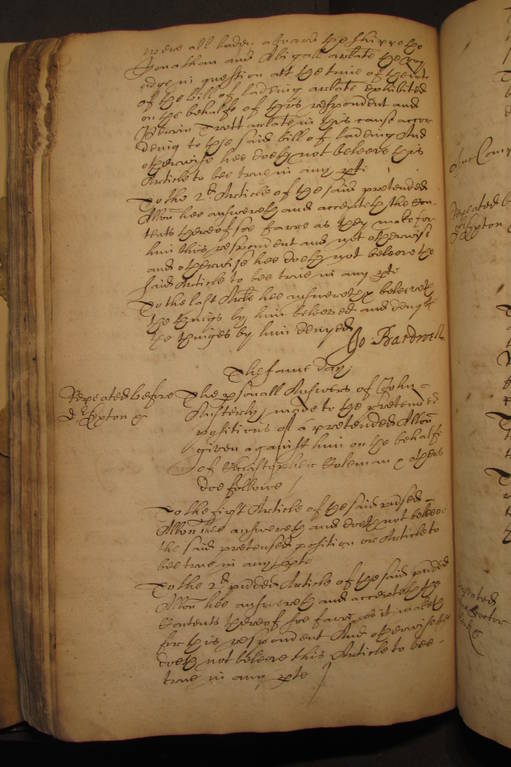 were all laden aboard the shipp the
Jonathan and Abigall arlate the voy
adge in question att the time of the date
of the bill of lading arlate exhibited
on the behalfe of this respondent and
Trott arlate in this cause accor
ding to the said bill of lading And
otherwise hee doeth not beleeve this
Article to bee true in any pte
To the 2d Article of the said pretended
Allon hee answereth and accepteth the Con
tents thereof soe farre as they make for
him this respondent and not otherwise
and otherwise hee doeth not beleeve the
said Article to bee true in any pte
To the last Arle hee answereth beleeveth
the things by him beleeved and denyeth
the things by him denyed
Jo Bardwell
The same day
Repeated before
d Exton
The psonall Answers of John
made to the pretended
positions of a pretended Allon
given against him on the behalfe
of Christopher Coleman & others
doe followe
To the first Article of the said ptended
Allon hee answereth and doeth not beleeve
the said pretended position or Article to
bee true in any pte
To the 2d ptended Article of the said ptended
Allon hee answereth and accepteth the
Contents thereof soe farre as it maketh
for this respondent And otherwise hee
doeth not beleeve this Article to bee
true in any pte